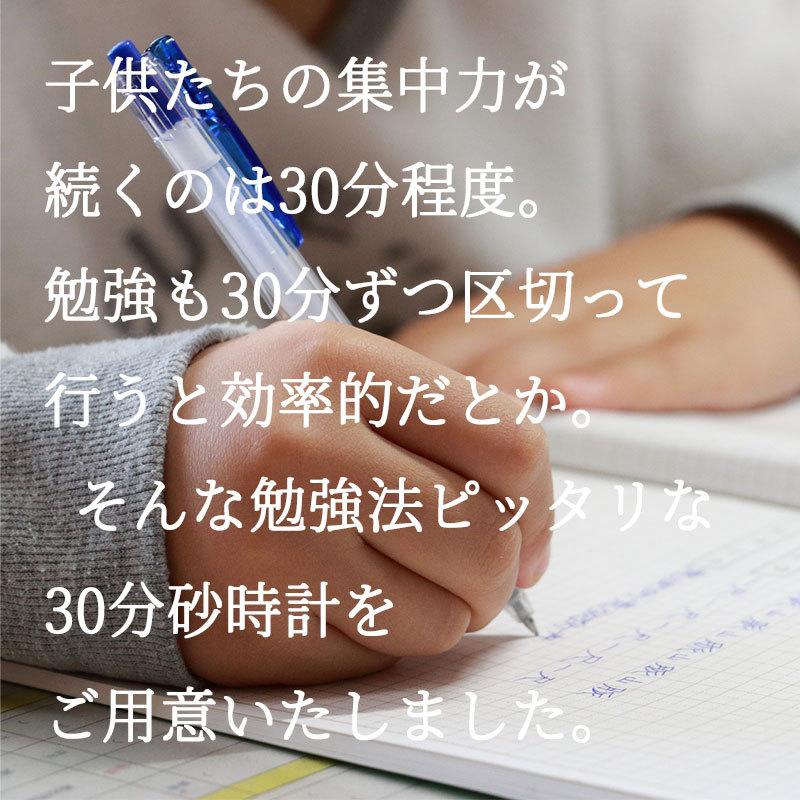 子供たちの集中力が
続くのは30分程度。
勉強も30分ずつ区切って
行うと効率的だとか。
そんな勉強法ピッタリな
30分砂時計を
ご用意いたしました。